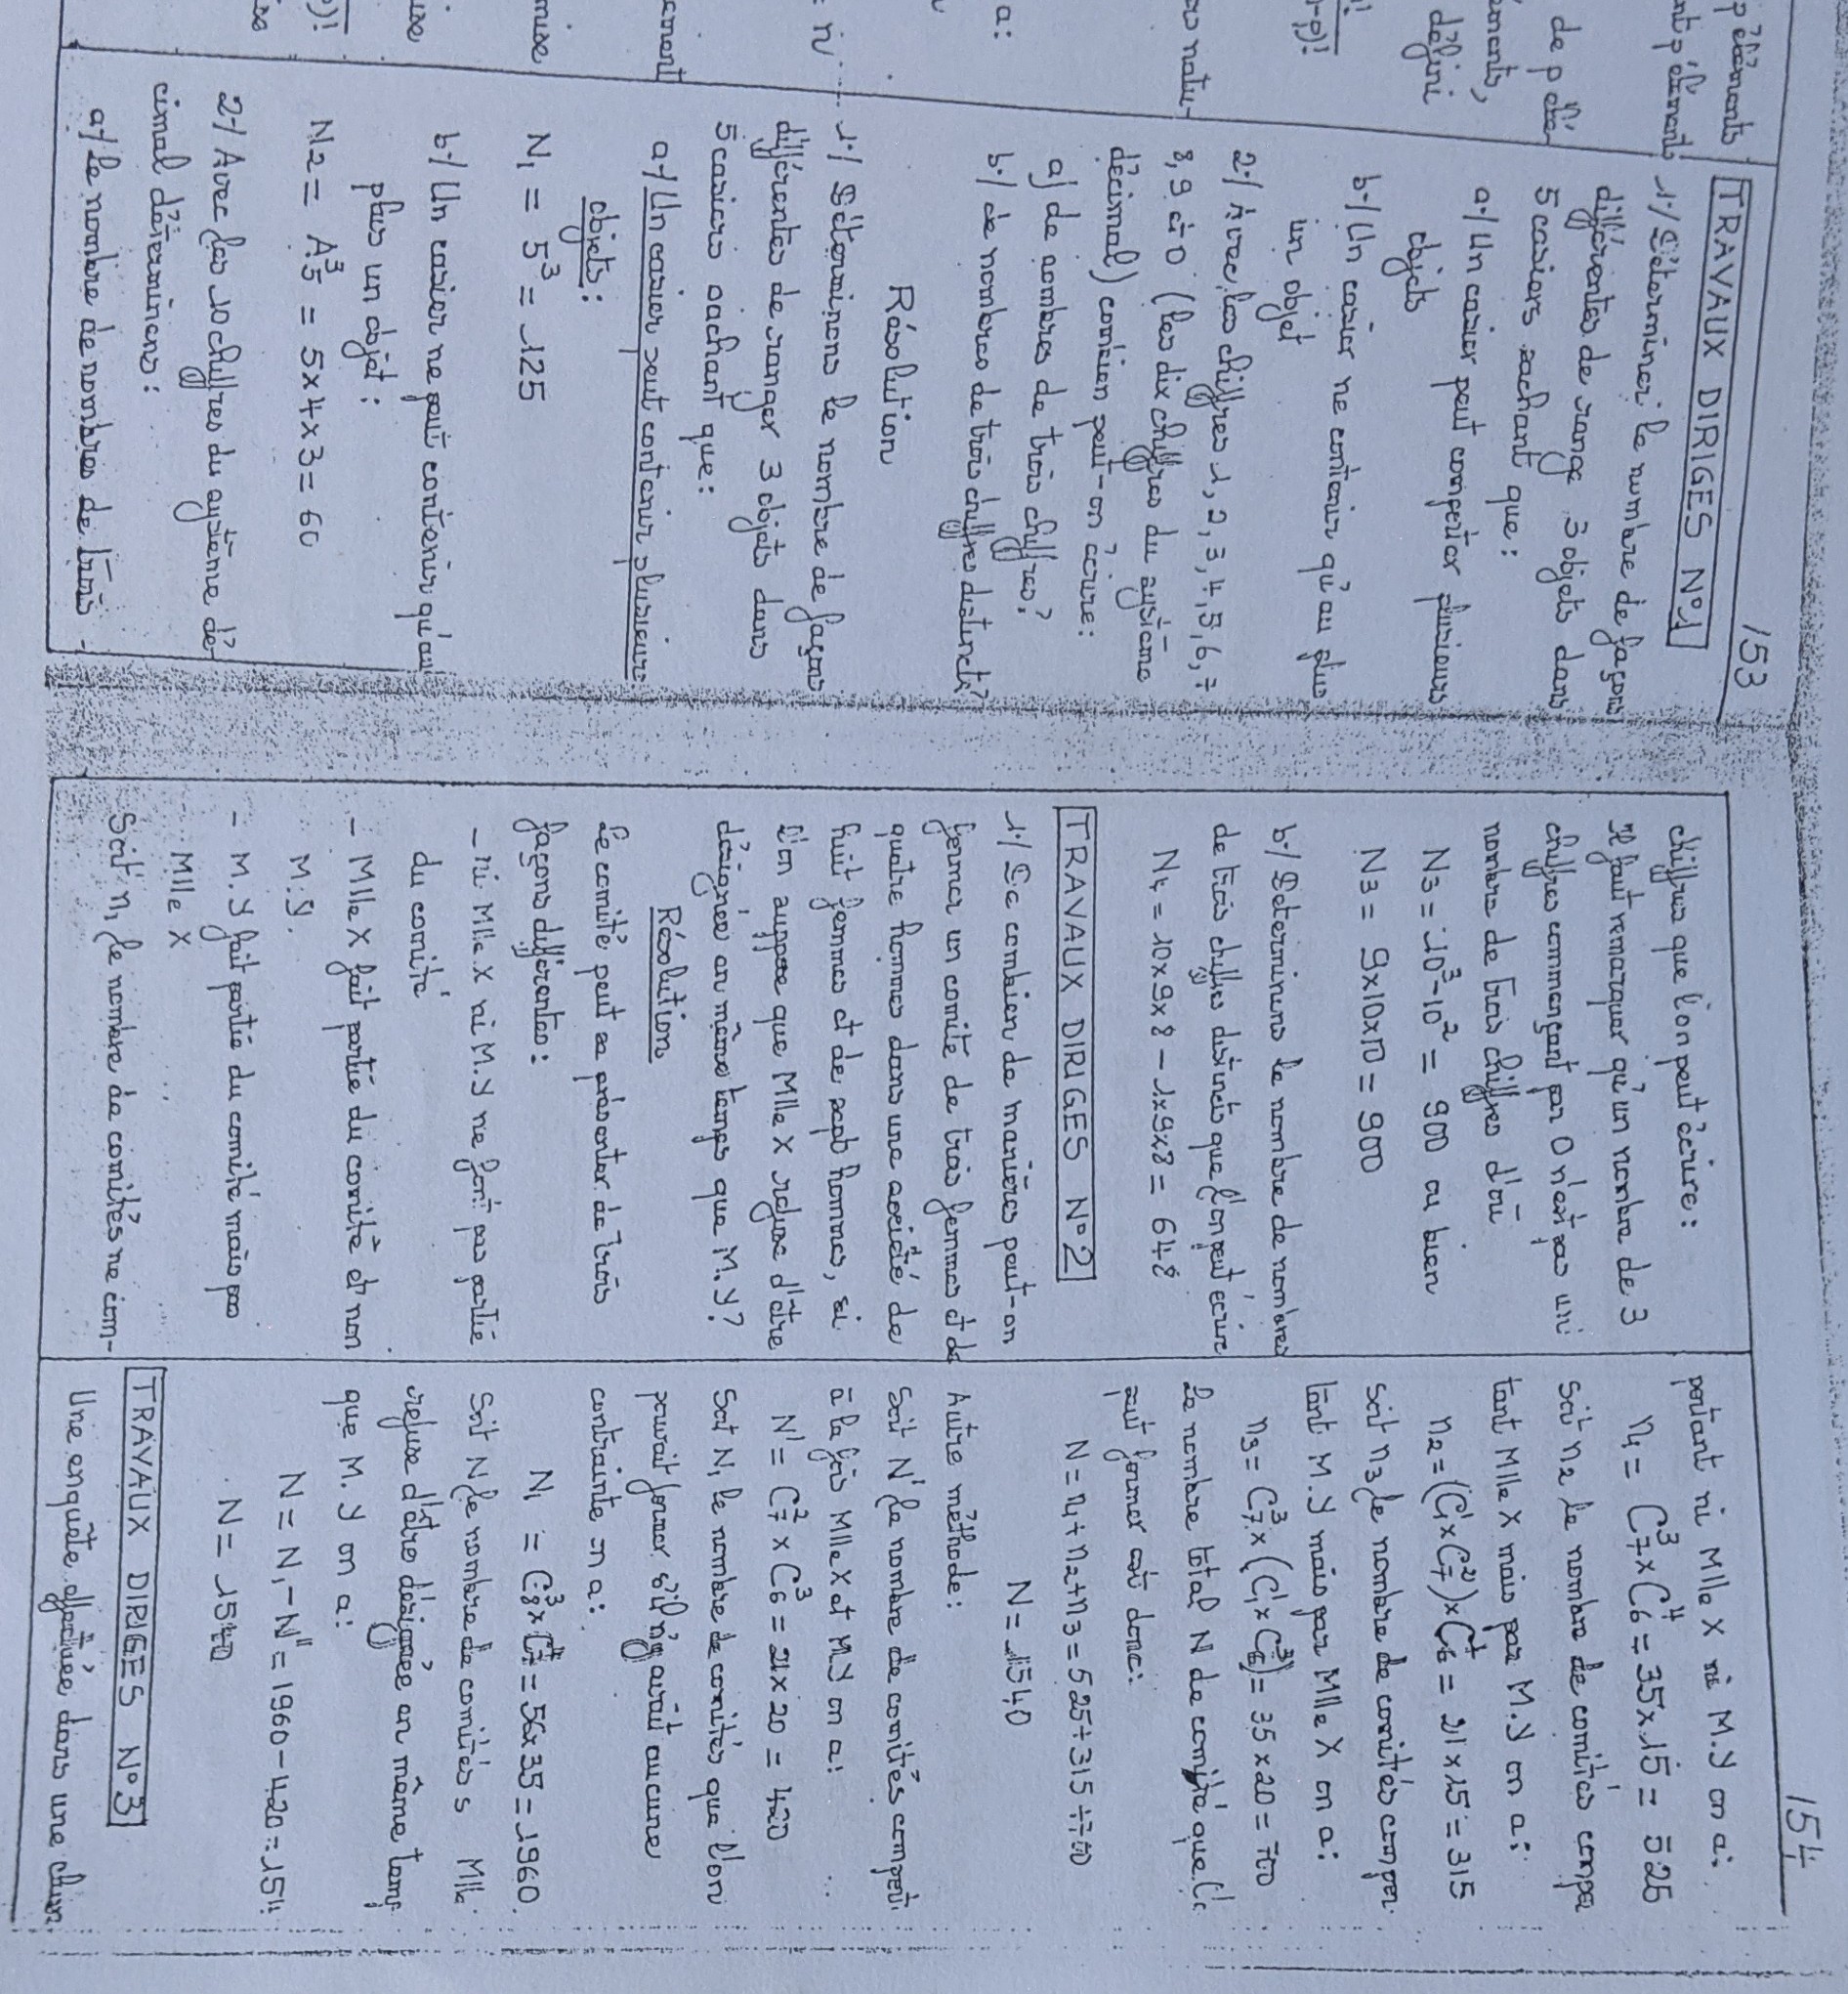 p éléments
de p élé-
éments,
défini
a:
153
TRAVAUX DIRIGES N°1
1-/ Déterminer le nombre de façons
différentes de range 3 objets dans
5 casiers sachant que:
a-/ Un casier peut comporter plusieurs
objets
b-/ Un casier ne contenir qu'au plus
un objet
2-/ Avec les chiffres 1, 2, 3, 4, 5, 6, 7
8, 9 et 0 (les dix chiffres du système
décimal) combien peut-on écrire:
a/ de nombres de trois chiffres?
b-/ de nombres de trois chiffres distincts?
Résolution
1-/ Déterminons le nombre de façons
différentes de ranger 3 objets dans
5 casiers sachant que:
a-/ Un casier peut contenir plusieurs
objets:
N₁ = 5³ = 125
b-/ Un casier ne peut contenir qu'au
plus un objet:
N2 = A³5 = 5x4x3 = 60
2-/ Avec les 10 chiffres du système dé-
cimal déterminons:
a-/ le nombre de nombres de trois
chiffres que l'on peut écrire:
Il faut remarquer qu'un nombre de 3
chiffres commençant par 0 n'est pas un
nombre de trois chiffres d'où
N3 = 10³-10² = 900 ou bien
N3 = 9x10x10 = 900
b-/ Determinons le nombre de nombres
de trois chiffres distincts que l'on peut écrire
N4 = 10x9x8 - 1x9x8 = 648
TRAVAUX DIRIGES N°2
1-/ De combien de manières peut-on
former un comité de trois femmes et de
quatre hommes dans une société de
huit femmes et de sept hommes, si
l'on suppose que Mlle X refuse d'être
désignée en même temps que M. Y?
Résolution
Le comité peut se présenter de trois
façons différentes:
- ni Mlle X ni M. Y ne font pas partie
du comité
- Mlle X fait partie du comité et non
M. Y.
- M. Y fait partie du comité mais pas
Mlle X
Soit n₁ le nombre de comités ne com-
154
portant ni Mlle X ni M. Y on a:
n₁ = C³7 x C⁴6 = 35x15 = 525
Soit n2 le nombre de comités compor
tant Mlle X mais pas M. Y on a:
n2 = (C¹1 x C²7) x C⁴6 = 21 x 15 = 315
Soit n3 le nombre de comités compor
tant M. Y mais pas Mlle X on a:
n3 = C³7 x (C¹1 x C³6) = 35 x 20 = 700
Le nombre total N de comité que l'
peut former est donc:
N = n₁ + n2 + n3 = 525 + 315 + 700
N = 1540
Autre méthode:
Soit N' le nombre de comités comport
à la fois Mlle X et M.Y on a:
N' = C²7 x C³6 = 21 x 20 = 420
Soit N₁ le nombre de comités que l'on
pouvait former s'il n'y avait aucune
contrainte on a:
N₁ = C³8 x C⁴7 = 56x35 = 1960
Soit N le nombre de comités s Mlle
refuse d'être désignée en même temps
que M. Y on a:
N = N₁ - N' = 1960 - 420 = 154
N = 1540
TRAVAUX DIRIGES N°3
Une enquête effectuée dans une